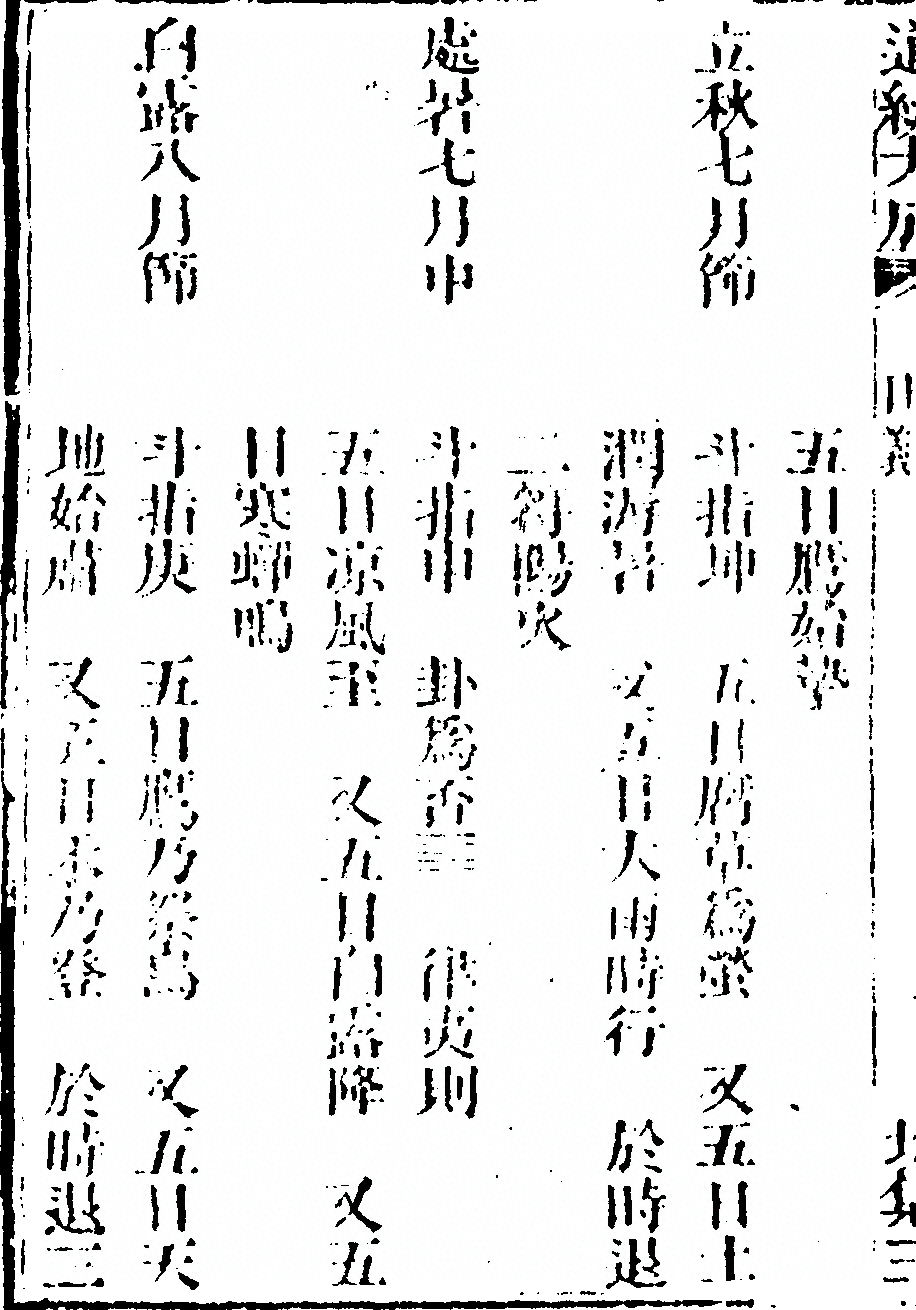 五日鷹始摯
立秋七月節 斗指坤 五日腐草為螢 又五日土
潤溽暑 又五日大雨時行 於時退
二符陽火
處暑七月中 斗指申 卦為否䷋ 律夷則
五日凉風至 又五日白露降 又五
日寒蟬鳴
白露八月節 斗指庚 五日鷹乃祭鳥 又五日天
地始肅 又五日禾乃登 於時退三